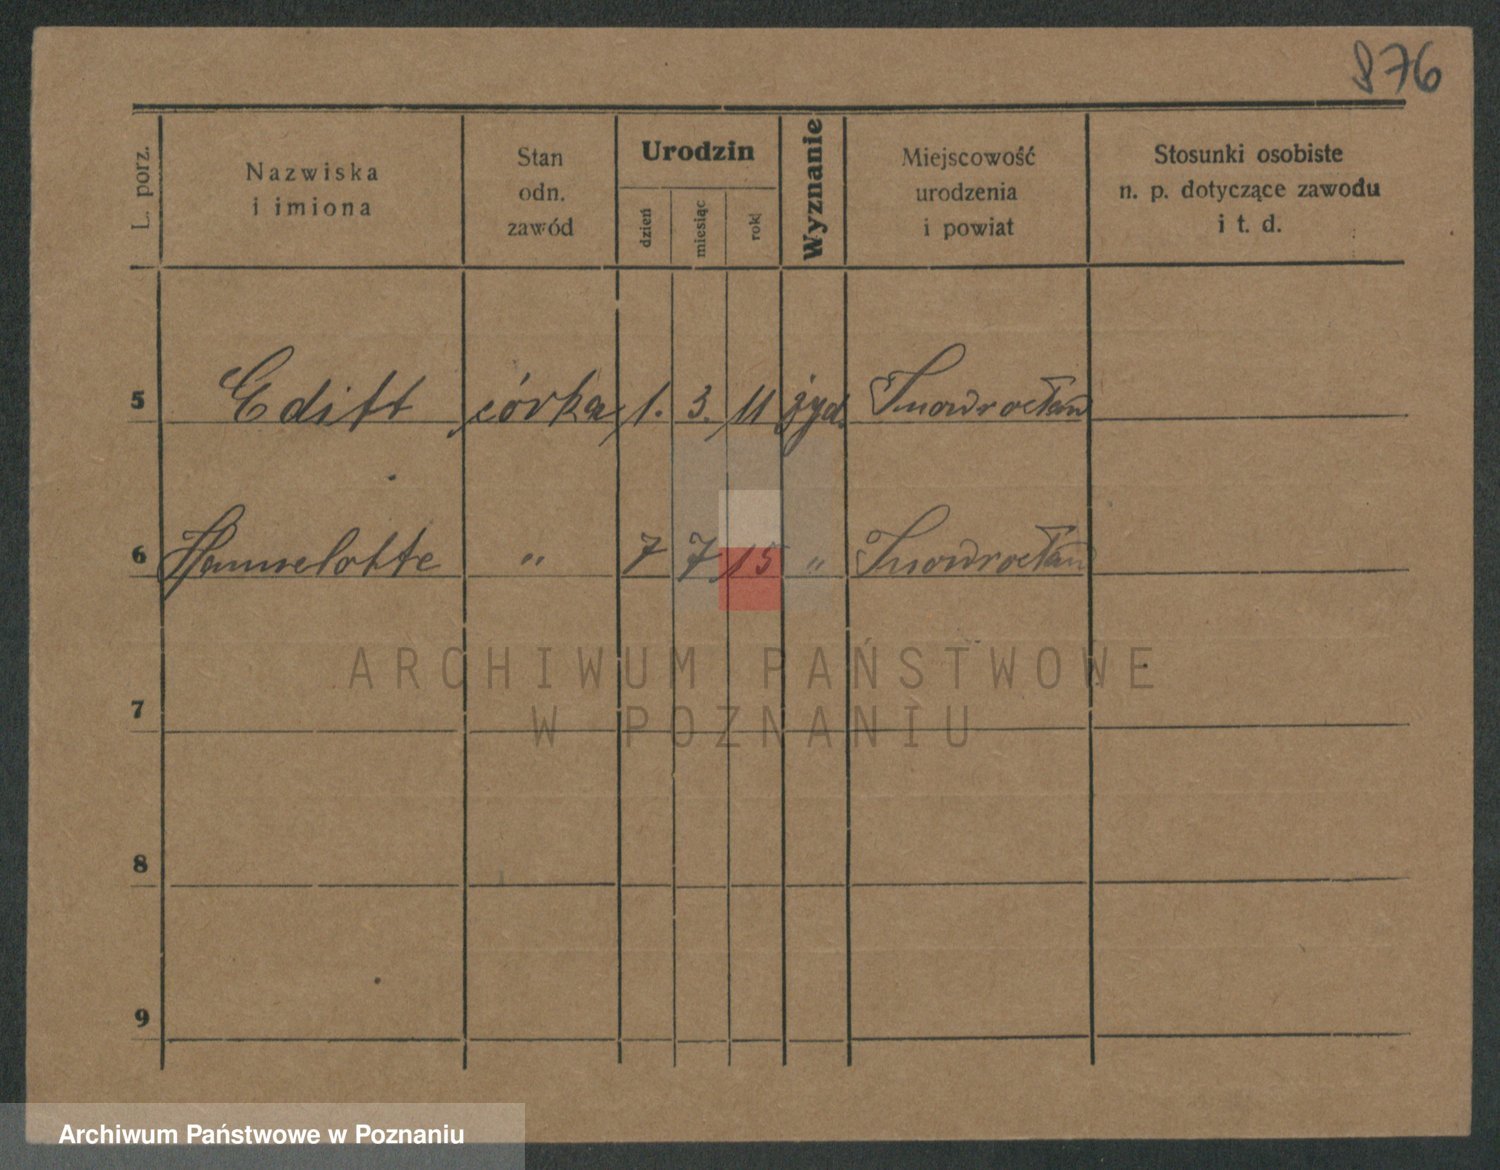 876
L. porz.
Nazwiska
i imiona
Stan
odn.
zawód
Urodzin
dzień
miesiąc
rok
Wyznanie
Miejscowość
urodzenia
i powiat
Stosunki osobiste
n. p. dotyczące zawodu
i t. d.
5 Editt córka 1. 3. 11 żyd. Inowrocław
6 Hannelotte " 7 7 15 " Inowrocław
7
8
9
ARCHIWUM PAŃSTWOWE
W POZNANIU
Archiwum Państwowe w Poznaniu